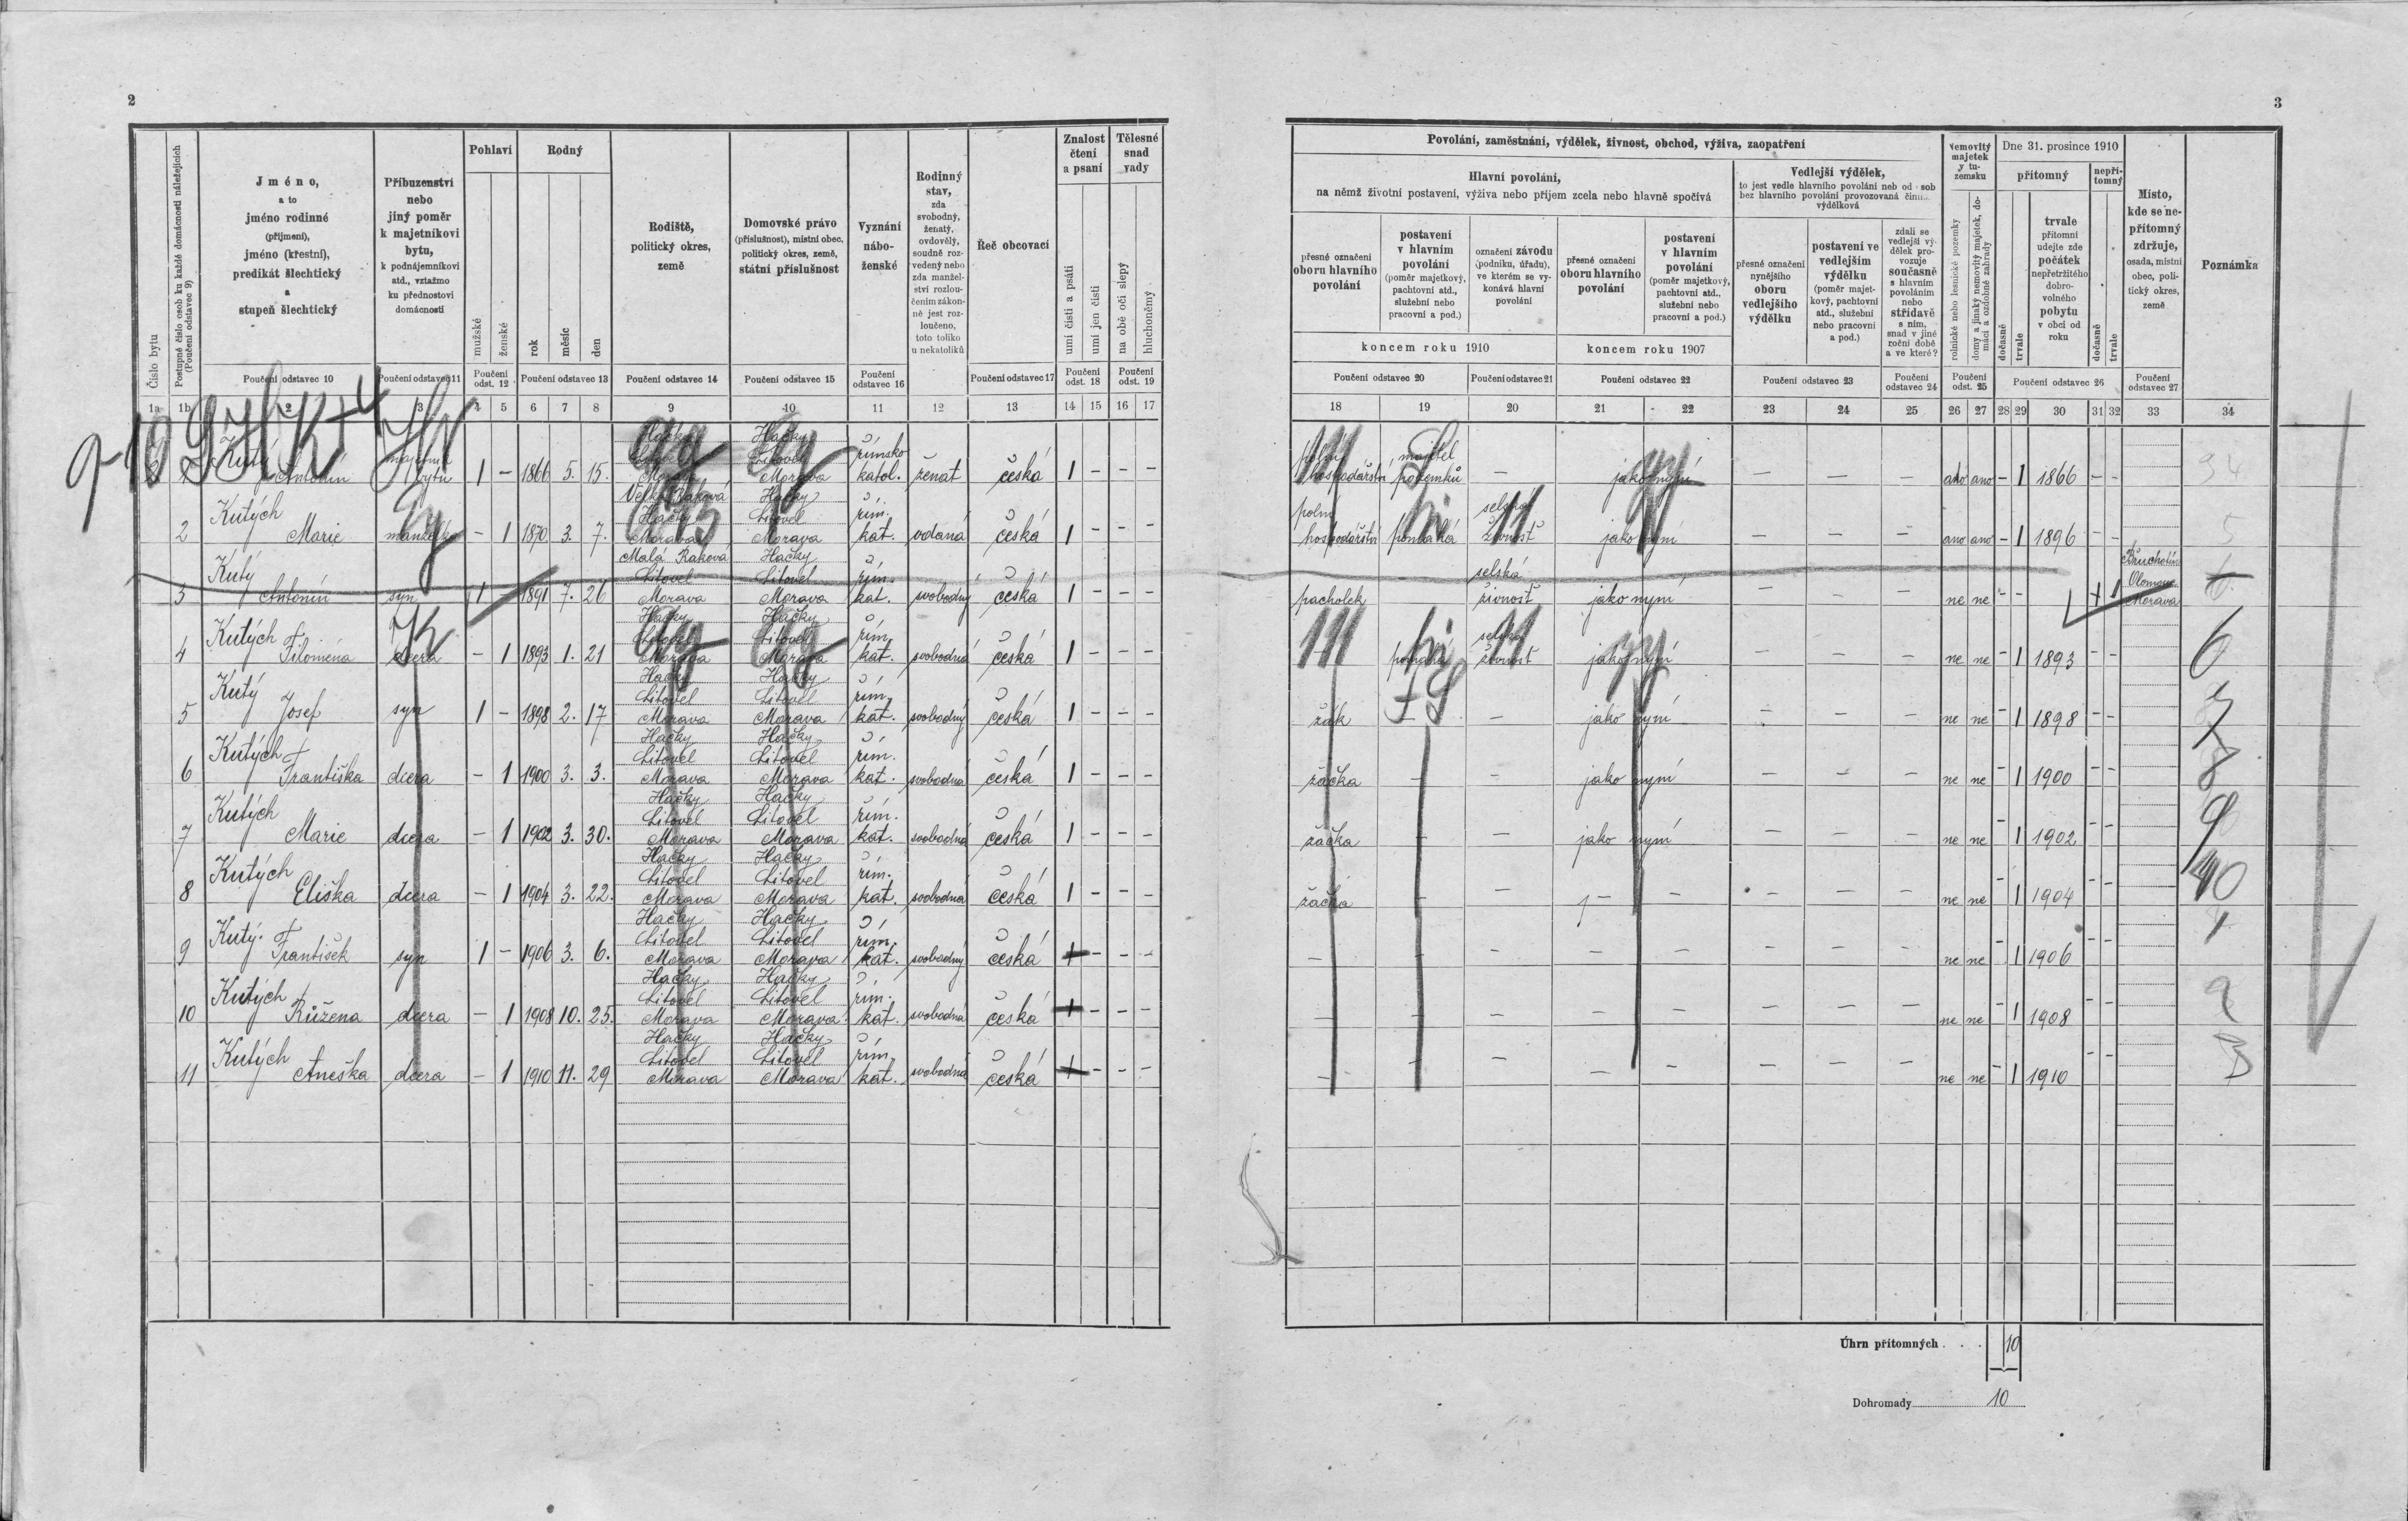 2
3
Číslo bytu
Postupné číslo osob ku každé domácnosti náležejících
(Poučení odstavec 9)
Jméno,
a to
jméno rodinné
(příjmení),
jméno (křestní),
predikát šlechtický
a
stupeň šlechtický
Příbuzenství
nebo
jiný poměr
k majetníkovi
bytu,
k podnájemníkovi
atd., vztažmo
ku přednostovi
domácnosti
Pohlaví
mužské
ženské
Rodný
rok
měsíc
den
Rodiště,
politický okres,
země
Domovské právo
(příslušnost), místní obec,
politický okres, země,
státní příslušnost
Vyznání
nábo-
ženské
Rodinný
stav,
zda
svobodný,
ženatý,
ovdovělý,
soudně roz-
vedený nebo
zda manžel-
ství rozlou-
čením zákon-
ně jest roz-
loučeno,
toto toliko
u nekatolíků
Řeč obcovací
Znalost
čtení
a psaní
umí čísti a psáti
umí jen čísti
Tělesné
snad
vady
na obě oči slepý
hluchoněmý
Poučení odstavec 10
Poučení odstavec 11
Poučení odst. 12
Poučení odstavec 13
Poučení odstavec 14
Poučení odstavec 15
Poučení odstavec 16
Poučení odstavec 17
Poučení odst. 18
Poučení odst. 19
1a 1b 2 3 4 5 6 7 8 9 10 11 12 13 14 15 16 17
Povolání, zaměstnání, výdělek, živnost, obchod, výživa, zaopatření
Hlavní povolání,
na němž životní postavení, výživa nebo příjem zcela nebo hlavně spočívá
přesné označení
oboru hlavního
povolání
postavení
v hlavním
povolání
(poměr majetkový,
pachtovní atd.,
služební nebo
pracovní a pod.)
označení závodu
(podniku, úřadu),
ve kterém se vy-
konává hlavní
povolání
přesné označení
oboru hlavního
povolání
postavení
v hlavním
povolání
(poměr majetkový,
pachtovní atd.,
služební nebo
pracovní a pod.)
koncem roku 1910
koncem roku 1907
Vedlejší výdělek,
to jest vedle hlavního povolání neb od osob
bez hlavního povolání provozovaná
výdělková
přesné označení
nynějšího
oboru
vedlejšího
výdělku
postavení ve
vedlejším
výdělku
(poměr majet-
kový, pachtovní
atd., služební
nebo pracovní
a pod.)
zdali se
vedlejší vý-
dělek pro-
vozuje
současně
s hlavním
povoláním
nebo
střídavě
s ním,
snad v jiné
roční době
a ve které?
Nemovitý
majetek
v tu-
zemsku
rolnické nebo lesnické pozemky
domy a jinaký nemovitý majetek, do-
mácí a ozdobné zahrady
Dne 31. prosince 1910
přítomný
dočasně
trvale
trvale
přítomní
udejte zde
počátek
nepřetržitého
dobro-
volného
pobytu
v obci od
roku
nepří-
tomný
dočasně
trvale
Místo,
kde se ne-
přítomný
zdržuje,
osada, místní
obec, poli-
tický okres,
země
Poznámka
Poučení odstavec 20
Poučení odstavec 21
Poučení odstavec 22
Poučení odstavec 23
Poučení odstavec 24
Poučení odst. 25
Poučení odstavec 26
Poučení odstavec 27
18 19 20 21 22 23 24 25 26 27 28 29 30 31 32 33 34
Kutý Antonín majetník bytu 1 – 1866 5. 15. Hačky Litovel Morava Hačky Litovel Morava římsko katol. ženat česká 1 – – – polní hospodářství majitel pozemků – jako nyní – – – ano ano – 1 1866 – –
2 Kutých Marie manželka – 1 1870 3. 7. Velká Raková Morava Hačky Litovel Morava řím. kat. vdaná česká 1 – – – polní hospodářství pomáhá selská živnost jako nyní – – – ano ano – 1 1896 – – 5
3 Kutý Antonín syn 1 – 1891 7. 26 Malá Raková Litovel Morava Hačky Litovel Morava řím. kat. svobodný česká 1 – – – pacholek selská živnost jako nyní – – – ne ne – – 1 Olomouc Morava
4 Kutých Filoména dcera – 1 1893 1. 21 Hačky Litovel Morava Hačky Litovel Morava řím. kat. svobodná česká 1 – – – pomáhá selská živnost jako nyní – – – ne ne – 1 1893 – – 6
5 Kutý Josef syn 1 – 1898 2. 17 Hačky Litovel Morava Hačky Litovel Morava řím. kat. svobodný česká 1 – – – žák – – jako nyní – – – ne ne – 1 1898 – –
6 Kutých Františka dcera – 1 1900 3. 3. Hačky Litovel Morava Hačky Litovel Morava řím. kat. svobodná česká 1 – – – žačka – – jako nyní – – – ne ne – 1 1900 – – 8
7 Kutých Marie dcera – 1 1902 3. 30. Hačky Litovel Morava Hačky Litovel Morava řím. kat. svobodná česká 1 – – – žačka – – jako nyní – – – ne ne – 1 1902 – – 9
8 Kutých Eliška dcera – 1 1904 3. 22. Hačky Litovel Morava Hačky Litovel Morava řím. kat. svobodná česká 1 – – – žačka – – – – – – – ne ne – 1 1904 – – 10
9 Kutý František syn 1 – 1906 3. 6. Hačky Litovel Morava Hačky Litovel Morava řím. kat. svobodný česká – – – – – – – – – – – ne ne – 1 1906 – –
10 Kutých Růžena dcera – 1 1908 10. 25. Hačky Litovel Morava Hačky Litovel Morava řím. kat. svobodná česká – – – – – – – – – – – ne ne – 1 1908 – –
11 Kutých Anežka dcera – 1 1910 11. 29 Hačky Litovel Morava Hačky Litovel Morava řím. kat. svobodná česká – – – – – – – – – – – ne ne – 1 1910 – –
Úhrn přítomných . . . 10
Dohromady 10